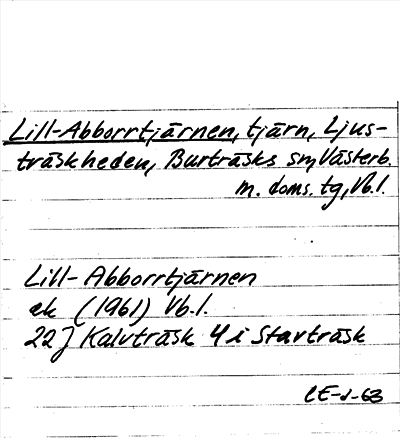 Lill-Abborrtjärnen, tjärn, Ljus-
träskheden, Burträsks sn, Västerb.
m. doms. tg, Vb.l.
Lill-Abborrtjärnen
ek (1961) Vb.l.
22J Kalvträsk 4 i Stavträsk